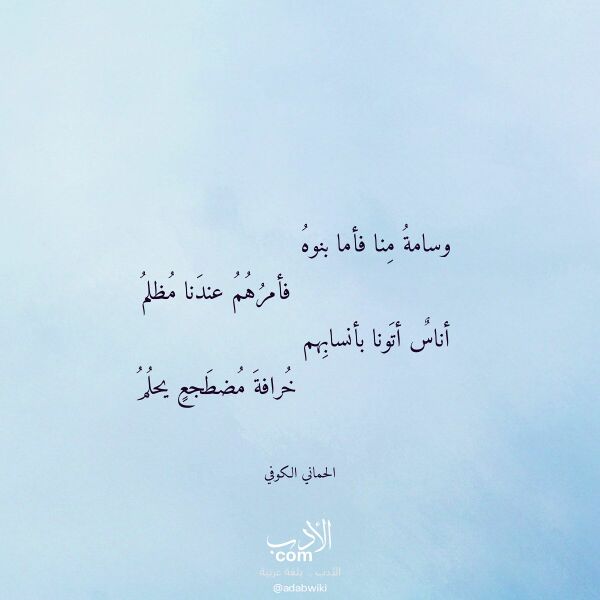 وسامةُ مِنا فأما بنوهُ
فأمرُهُمُ عندَنا مُظلمُ
أناسٌ أتَونا بأنسابِهم
خُرافةَ مُضطَجعٍ يحلُمُ
الحماني الكوفي
الأدب
com
الأدب .. بلغة عربية
@adabwiki